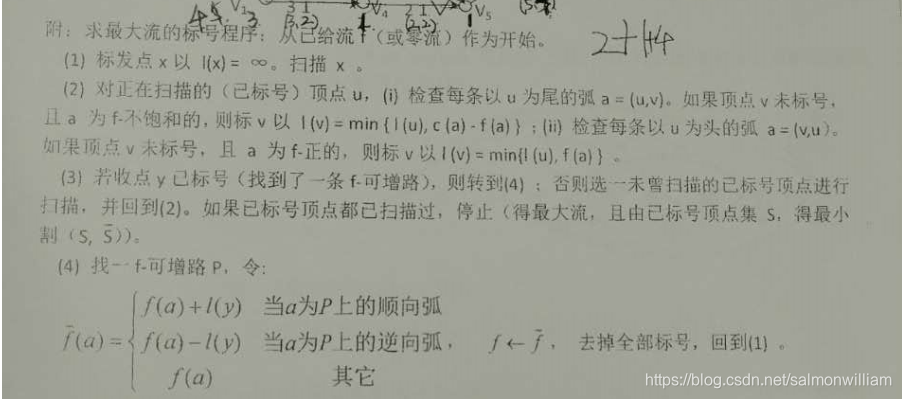 V₃ 3 1 V₄ 2 1 V₅
(3,2) (2,2)
附：求最大流的标号程序：从已给流 f（或零流）作为开始。
2++4
(1) 标发点 x 以 l(x) = ∞。扫描 x 。
(2) 对正在扫描的（已标号）顶点 u，(i) 检查每条以 u 为尾的弧 a = (u,v)。如果顶点 v 未标号，
且 a 为 f-不饱和的，则标 v 以 l (v) = min { l (u), c (a) - f (a) } ；(ii) 检查每条以 u 为头的弧 a = (v,u)。
如果顶点 v 未标号，且 a 为 f-正的，则标 v 以 l (v) = min{l (u), f (a) } 。
(3) 若收点 y 已标号（找到了一条 f-可增路），则转到(4) ；否则选一未曾扫描的已标号顶点进行
扫描，并回到(2)。如果已标号顶点都已扫描过，停止（得最大流，且由已标号顶点集 S，得最小
割（S, S̄））。
(4) 找一 f-可增路 P，令:
f(a)+l(y) 当a为P上的顺向弧
f̄(a) = { f(a)−l(y) 当a为P上的逆向弧， f ← f̄ ， 去掉全部标号，回到(1) 。
f(a) 其它
https://blog.csdn.net/salmonwilliam